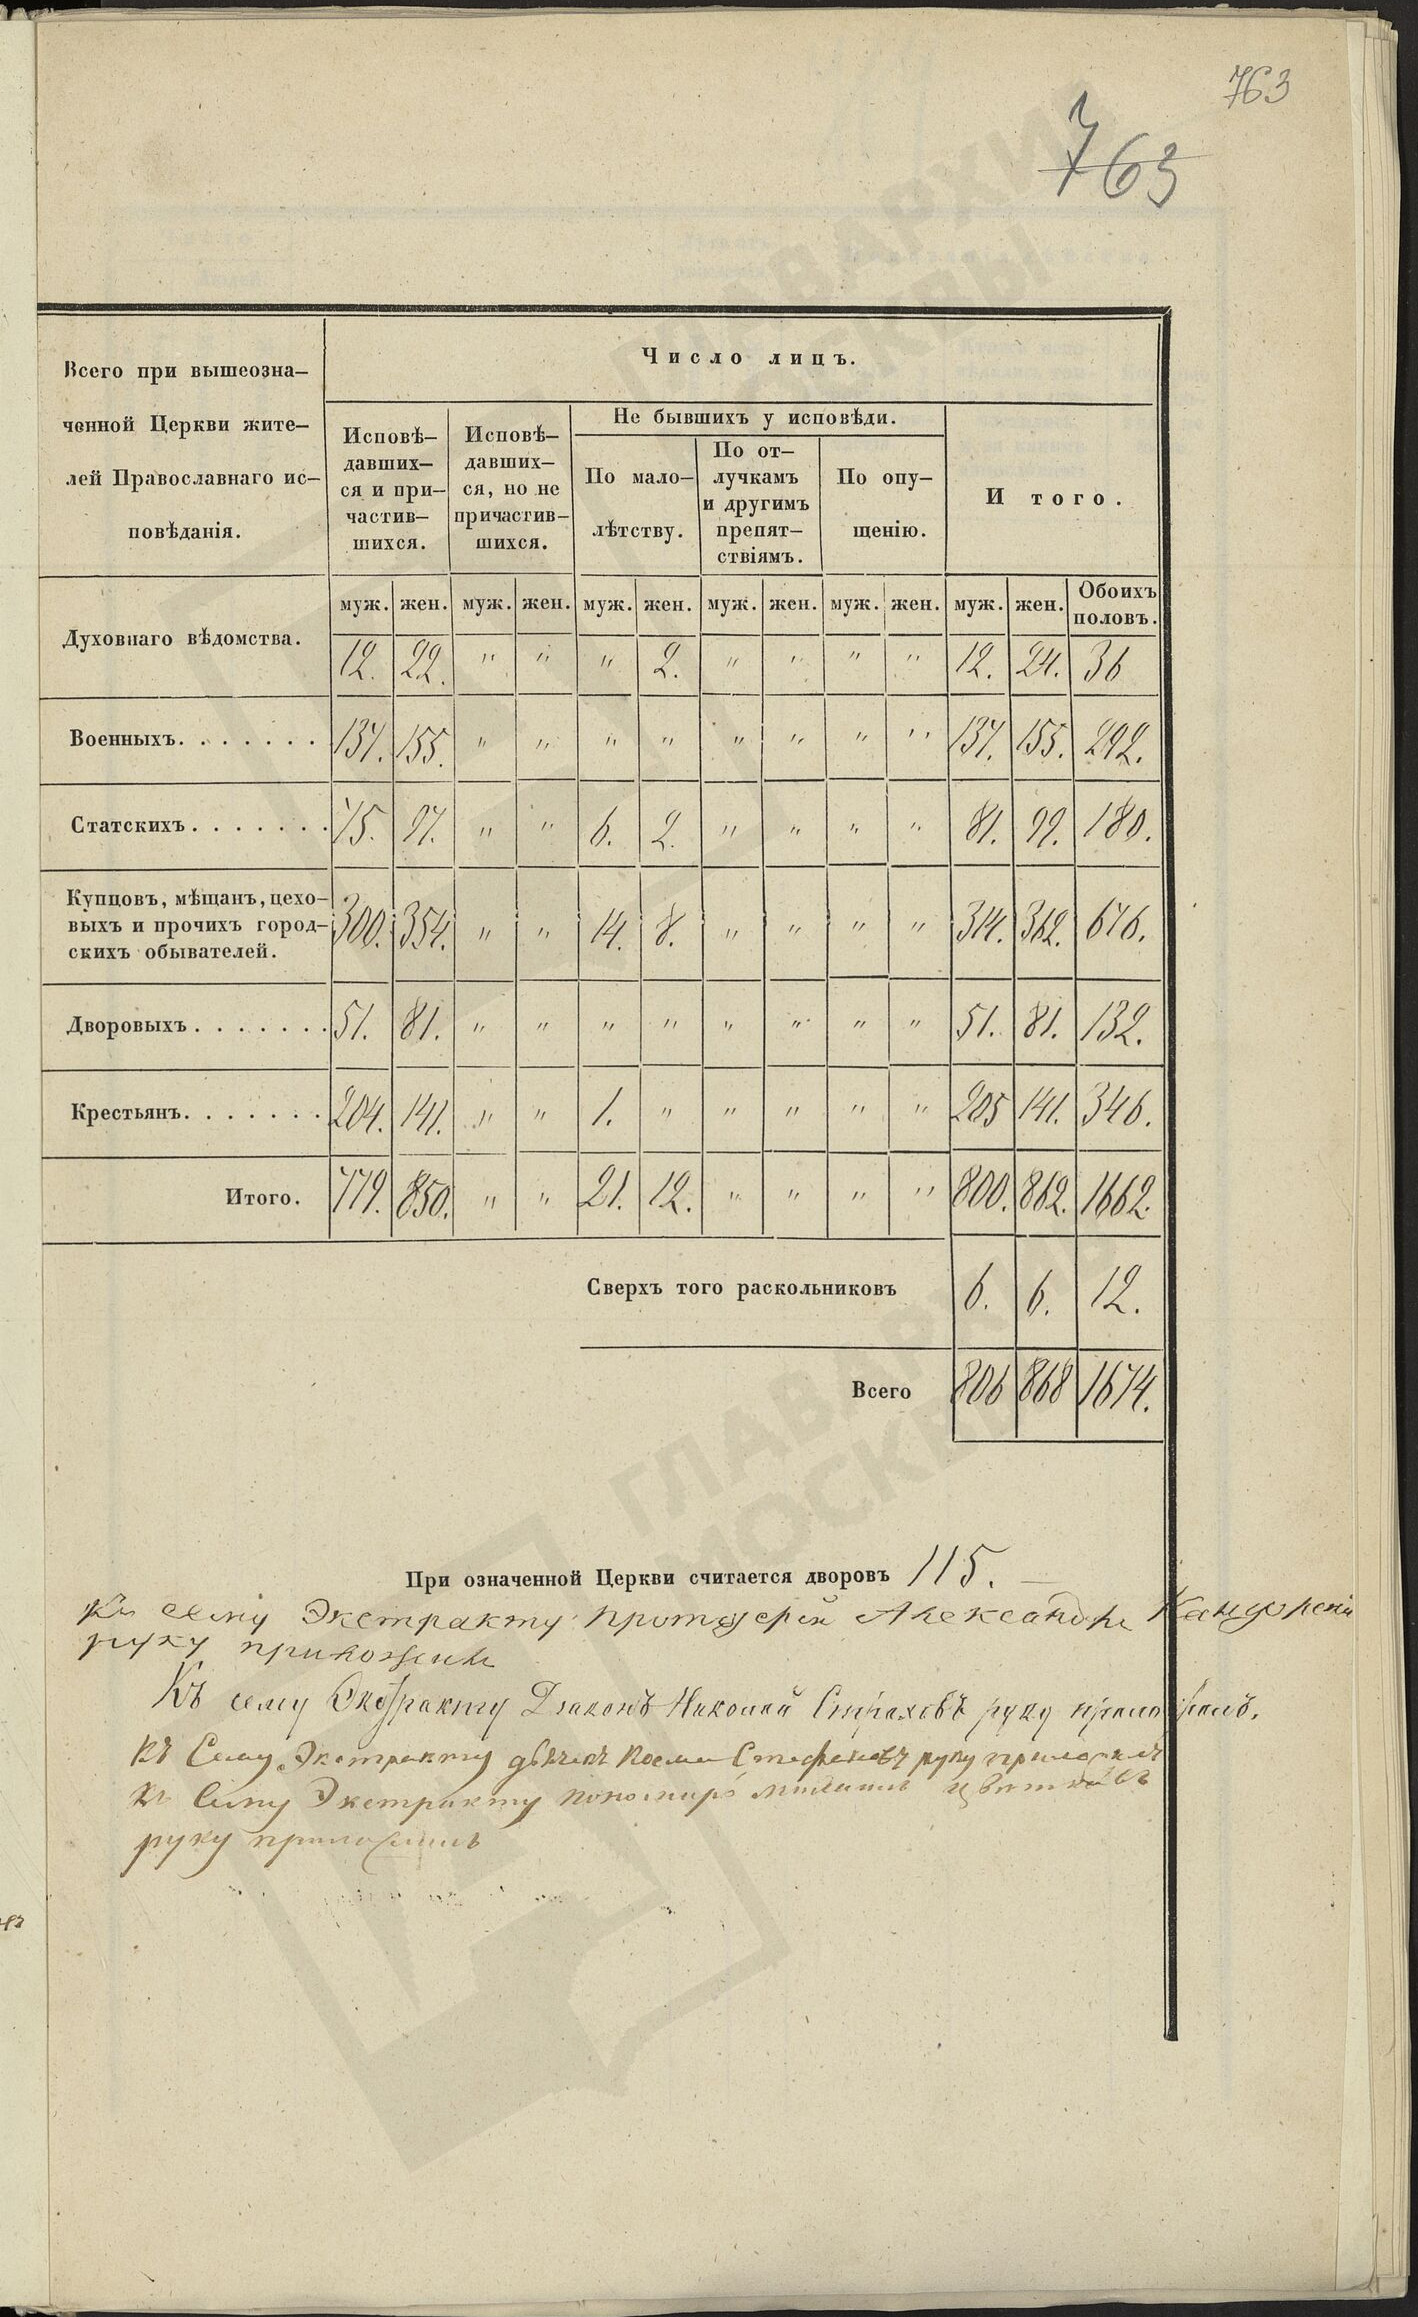 763
763
Всего при вышеозна-
ченной Церкви жите-
лей Православнаго ис-
повѣданія.
Число лицъ.
Исповѣ-
давших-
ся и при-
частив-
шихся.
Исповѣ-
давших-
ся, но не
причастив-
шихся.
Не бывшихъ у исповѣди.
По мало-
лѣтству.
По от-
лучкамъ
и другимъ
препят-
ствіямъ.
По опу-
щенію.
И того.
муж. жен. муж. жен. муж. жен. муж. жен. муж. жен. муж. жен. Обоихъ половъ.
Духовнаго вѣдомства. 12. 22. " " " 2. " " " " 12. 24. 36
Военныхъ. . . . . . . 137. 155. " " " " " " " " 137. 155. 292.
Статскихъ . . . . . . . 75. 97. " " 6. 2. " " " " 81. 99. 180.
Купцовъ, мѣщанъ, цехо-
выхъ и прочихъ город-
скихъ обывателей. 300. 354. " " 14. 8. " " " " 314. 362. 676.
Дворовыхъ . . . . . . . 51. 81. " " " " " " " " 51. 81. 132.
Крестьянъ. . . . . . . 204. 141. " " 1. " " " " " 205 141. 346.
Итого. 779. 850. " " 21. 12. " " " " 800. 862. 1662.
Сверхъ того раскольниковъ 6. 6. 12.
Всего 806 868 1674.
При означенной Церкви считается дворовъ 115.
Къ сему Экстракту протоіерей Александръ
руку приложилъ
Къ сему Экстракту Діаконъ Николай Страховъ руку приложилъ.
Къ Сему Экстракту дьячекъ Косма Стефановъ руку приложилъ
Къ Сему Экстракту пономарь Михаилъ Цвѣтковъ
руку приложилъ
ГЛАВАРХИВ
МОСКВЫ
ГЛАВАРХИВ
МОСКВЫ